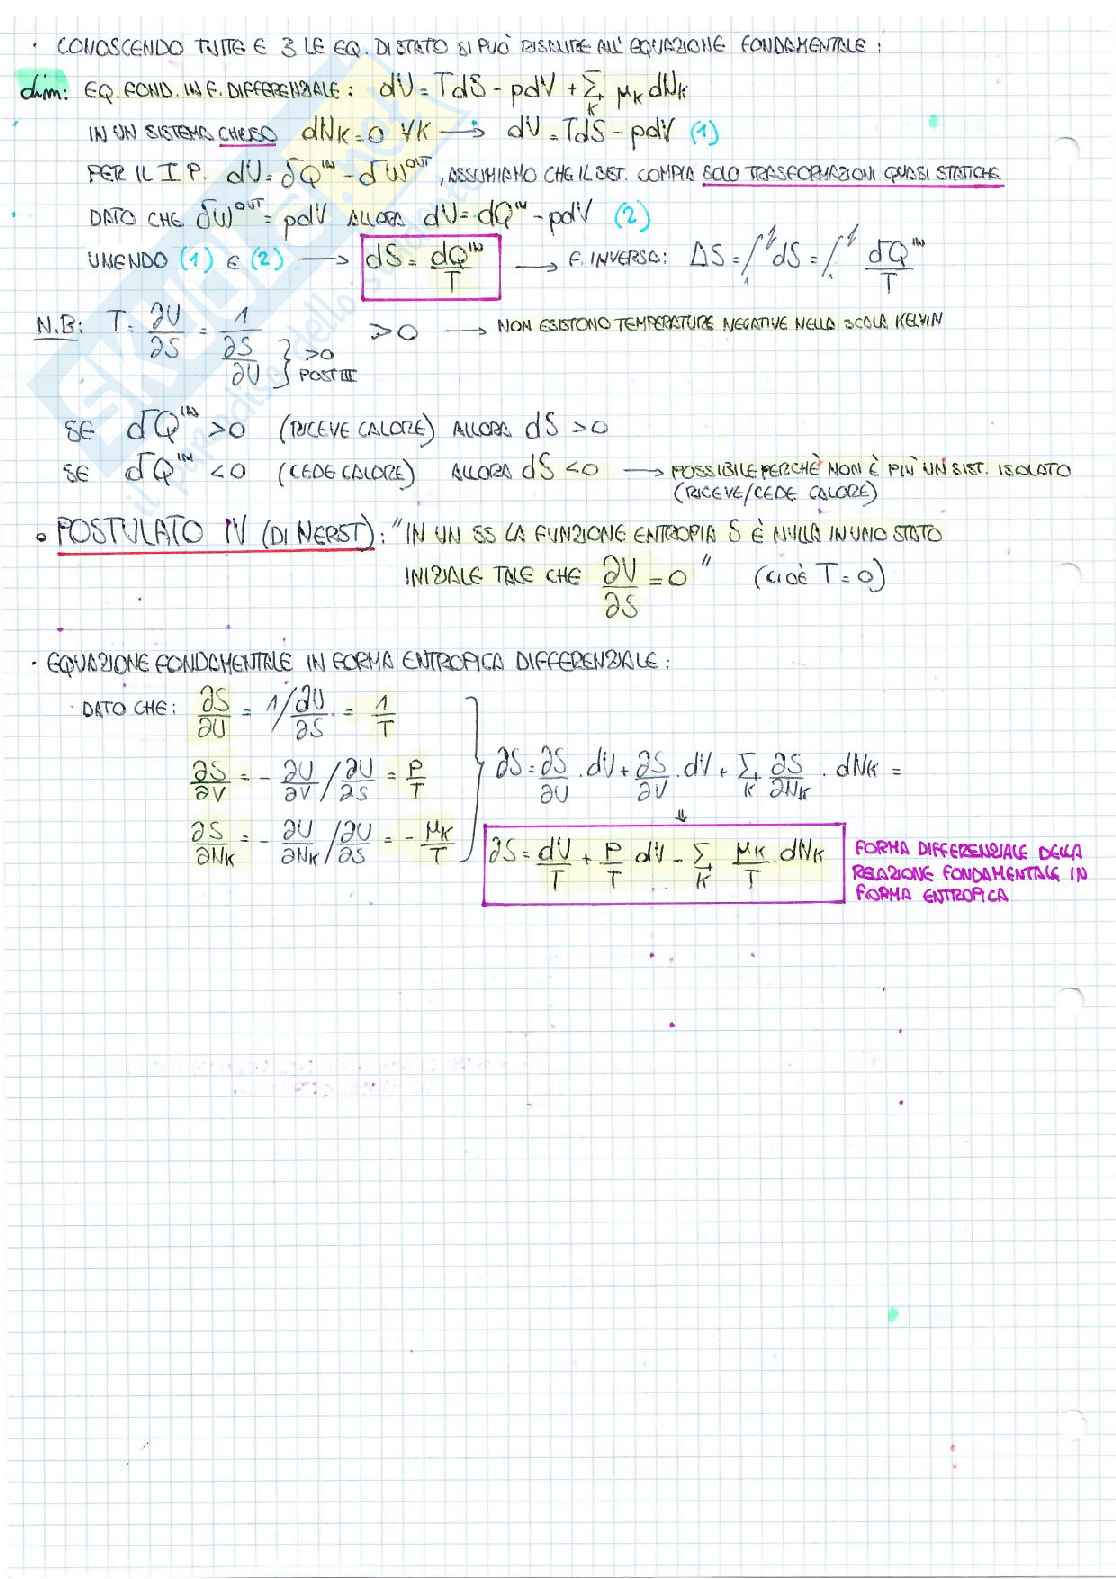 · CONOSCENDO TUTTE E 3 LE EQ. DI STATO SI PUÒ RISALIRE ALL'EQUAZIONE FONDAMENTALE:
dim: EQ. FOND. IN F. DIFFERENZIALE: dU = TdS - pdV + Σ_K μ_K dN_K
IN UN SISTEMA CHIUSO dN_K = 0 ∀K → dU = TdS - pdV (1)
PER IL I P. dU = δQ^IN - δW^OUT, ASSUMIAMO CHE IL SIST. COMPIA SOLO TRASFORMAZIONI QUASI STATICHE
DATO CHE δW^OUT = pdV ALLORA dU = dQ^IN - pdV (2)
UNENDO (1) E (2) → dS = dQ^IN/T → F. INVERSA: ΔS = ∫_1^2 dS = ∫_1^2 dQ^IN/T
N.B: T = ∂U/∂S = 1/(∂S/∂U) } >0 POST III ≥0 → NON ESISTONO TEMPERATURE NEGATIVE NELLA SCALA KELVIN
SE δQ^IN >0 (RICEVE CALORE) ALLORA dS >0
SE δQ^IN <0 (CEDE CALORE) ALLORA dS <0 → POSSIBILE PERCHÈ NON È PIÙ UN SIST. ISOLATO
(RICEVE/CEDE CALORE)
• POSTULATO IV (DI NERST): "IN UN SS LA FUNZIONE ENTROPIA S È NULLA IN UNO STATO
INIZIALE TALE CHE ∂U/∂S = 0" (CIOÈ T = 0)
· EQUAZIONE FONDAMENTALE IN FORMA ENTROPICA DIFFERENZIALE:
· DATO CHE: ∂S/∂U = 1/∂U/∂S = 1/T
∂S/∂V = - ∂U/∂V / ∂U/∂S = P/T
∂S/∂N_K = - ∂U/∂N_K / ∂U/∂S = - μ_K/T
} ∂S = ∂S/∂U · dU + ∂S/∂V · dV + Σ_K ∂S/∂N_K · dN_K =
⇓
∂S = dU/T + P/T dV - Σ_K μ_K/T dN_K
FORMA DIFFERENZIALE DELLA
RELAZIONE FONDAMENTALE IN
FORMA ENTROPICA